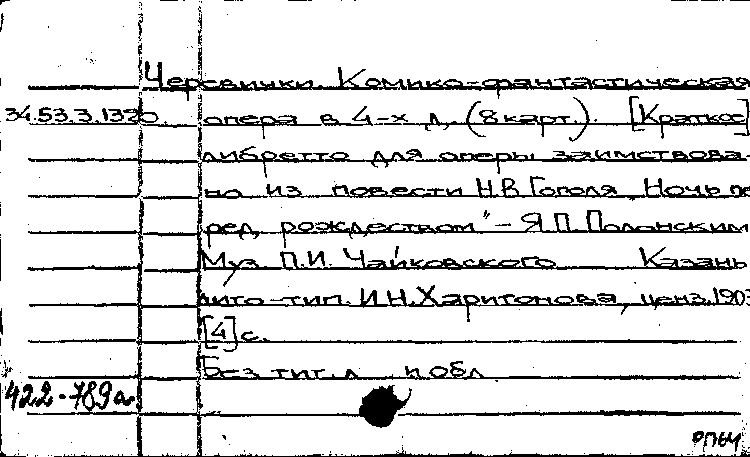 Черевички. Комико-фантастическая
34.53.3.1320. опера в 4-х д. (8 карт.). [Краткое]
либретто для оперы заимствова-
но из повести Н.В. Гоголя „Ночь пе-
ред рождеством" – Я.П. Полонским
Муз. П.И. Чайковского Казань
лито-тип. И.Н. Харитонова, ценз. 1903
[4] с.
Без тит. л. и обл.
422-789а
РП64